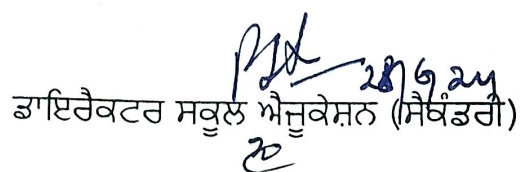 28/6/24
ਡਾਇਰੈਕਟਰ ਸਕੂਲ ਐਜੂਕੇਸ਼ਨ (ਸੈਕੰਡਰੀ)